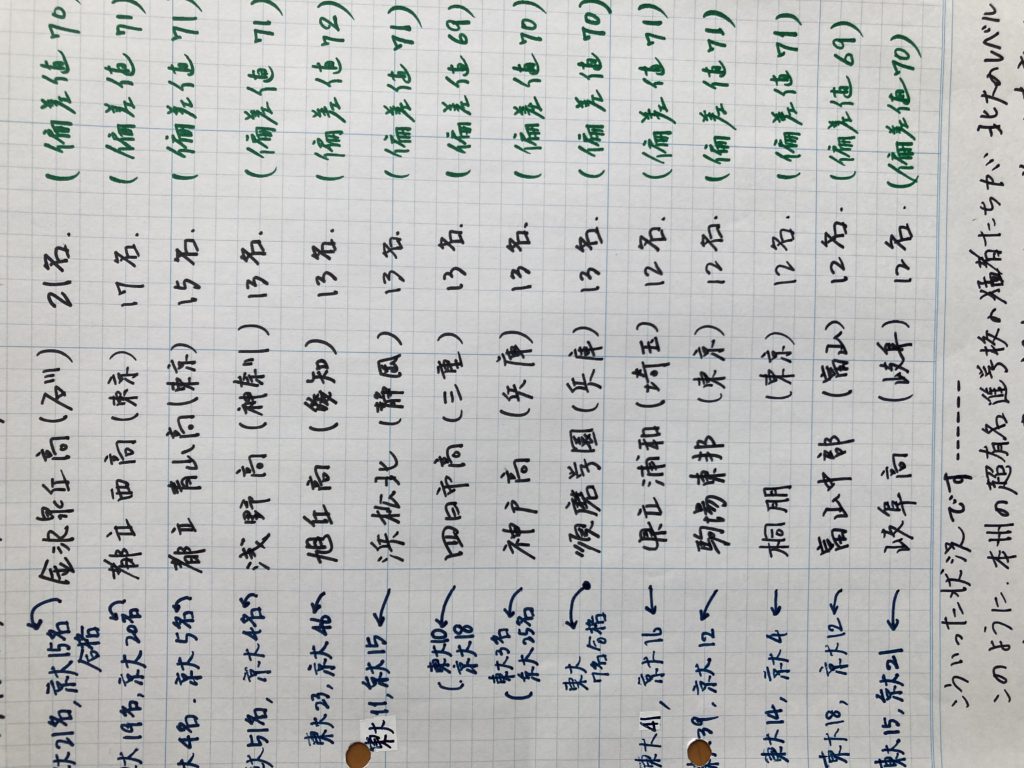 大21名, 京大15名合格 金沢泉丘高(石川) 21名. (偏差値70)
大19名, 京大20名 都立西高(東京) 17名. (偏差値71)
大4名. 京大5名 都立青山高(東京) 15名. (偏差値71)
大51名, 京大4名 浅野高(神奈川) 13名. (偏差値71)
東大23, 京大46 旭丘高(愛知) 13名. (偏差値72)
東大11, 京大15 浜松北(静岡) 13名. (偏差値71)
(東大10 京大18 四日市高(三重) 13名. (偏差値69)
(東大3名 京大25名 神戸高(兵庫) 13名. (偏差値70)
東大 名合格 須磨学園(兵庫) 13名. (偏差値70)
東大41, 京大16 県立浦和(埼玉) 12名. (偏差値71)
39, 京大12 駒場東邦(東京) 12名. (偏差値71)
東大14, 京大4 桐朋(東京) 12名. (偏差値71)
東大18, 京大12 富山中部(富山) 12名. (偏差値69)
東大15, 京大21 岐阜高(岐阜) 12名. (偏差値70)
こういった状況です-------
このように. 本州の超有名進学校の猛者たちが 北大のレベル